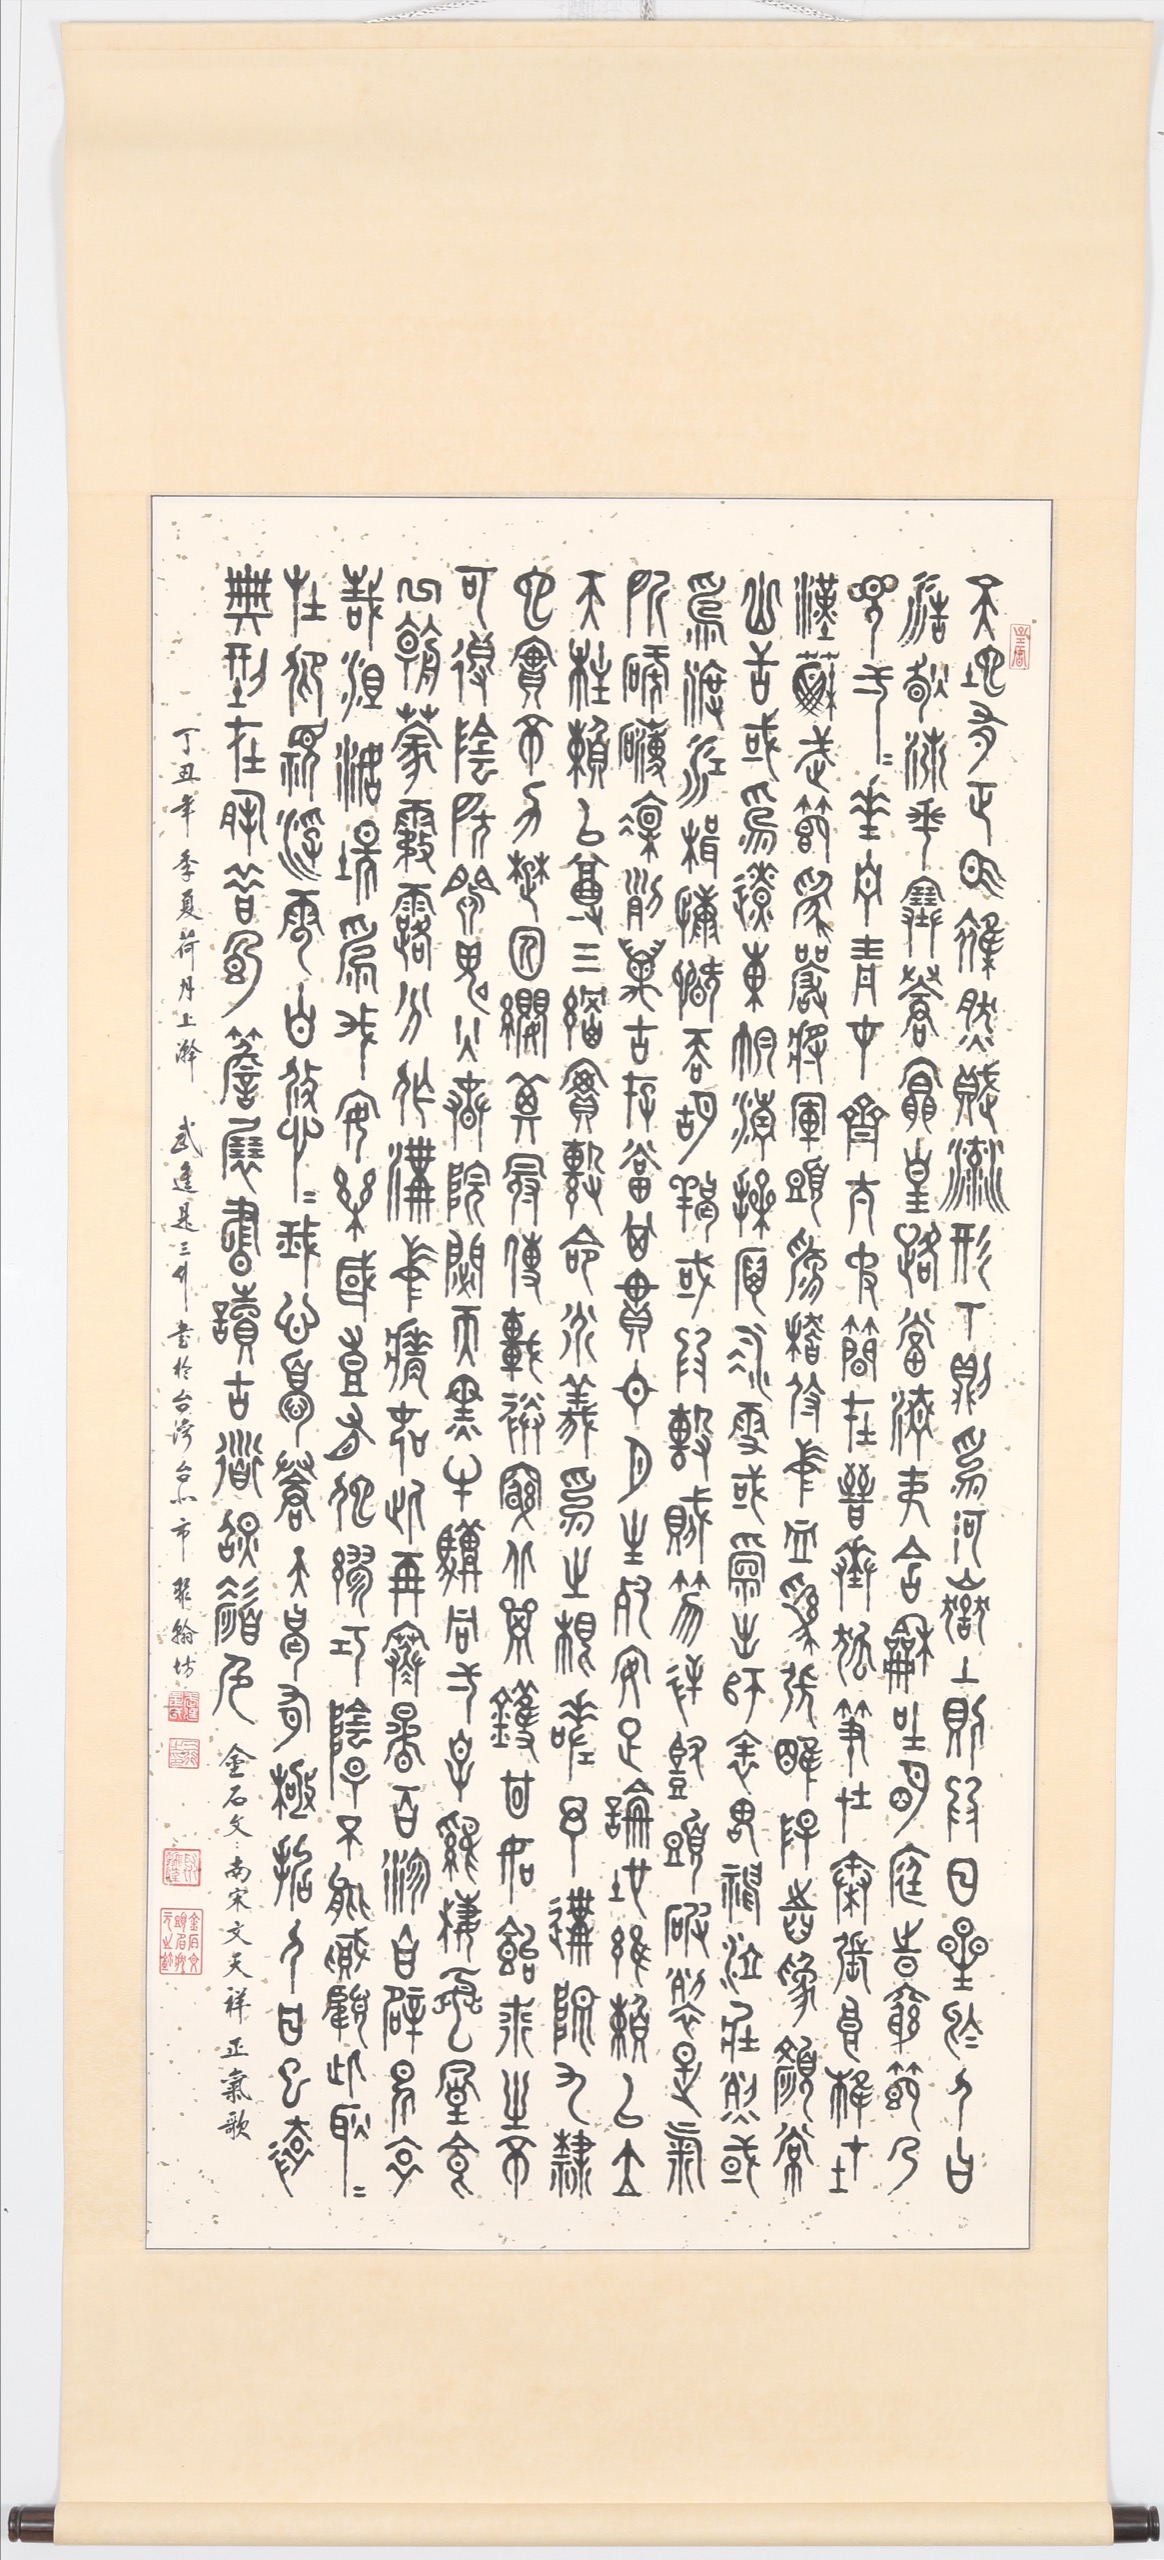 天地有正氣雜然賦流形下則為河嶽上則為日星於人曰
浩然沛乎塞蒼冥皇路當清夷含和吐明庭時窮節乃
見一一垂丹青在齊太史簡在晉董狐筆在秦張良椎在
漢蘇武節為嚴將軍頭為嵇侍中血為張睢陽齒為顏常
山舌或為遼東帽清操厲冰雪或為出師表鬼神泣壯烈或
為渡江楫慷慨吞胡羯或為擊賊笏逆豎頭破裂是氣
所磅礴凜烈萬古存當其貫日月生死安足論地維賴以立
天柱賴以尊三綱實繫命道義為之根嗟予遘陽九隸
也實不力楚囚纓其冠傳車送窮北鼎鑊甘如飴求之不
可得陰房闃鬼火春院閟天黑牛驥同一皂雞棲鳳凰食
一朝蒙霧露分作溝中瘠如此再寒暑百沴自辟易哀
哉沮洳場為我安樂國豈有他繆巧陰陽不能賊顧此耿耿
在仰視浮雲白悠悠我心悲蒼天曷有極哲人日已遠
典型在夙昔風簷展書讀古道照顏色 金石文:南宋文天祥正氣歌
丁丑年 季夏荷月上澣 武進是三 書於台灣台北市 翰坊